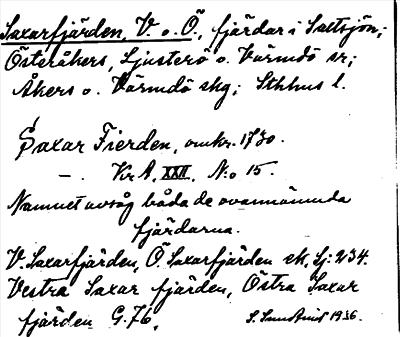 Saxarfjärden, V. o. Ö., fjärdar i Saltsjön;
Österåkers, Ljusterö o. Värmdö sr;
Åkers o. Värmdö skg; Sthlms l.
Saxar Fierden, omkr. 1730.
—. Kr A. XXII. No 15.
Namnet avsåg båda de ovannämnda
fjärdarna.
V. Saxarfjärden, Ö. Saxarfjärden ek, Sj: 234.
Vestra Saxar fjärden, Östra Saxar
fjärden G. 76.
1936.